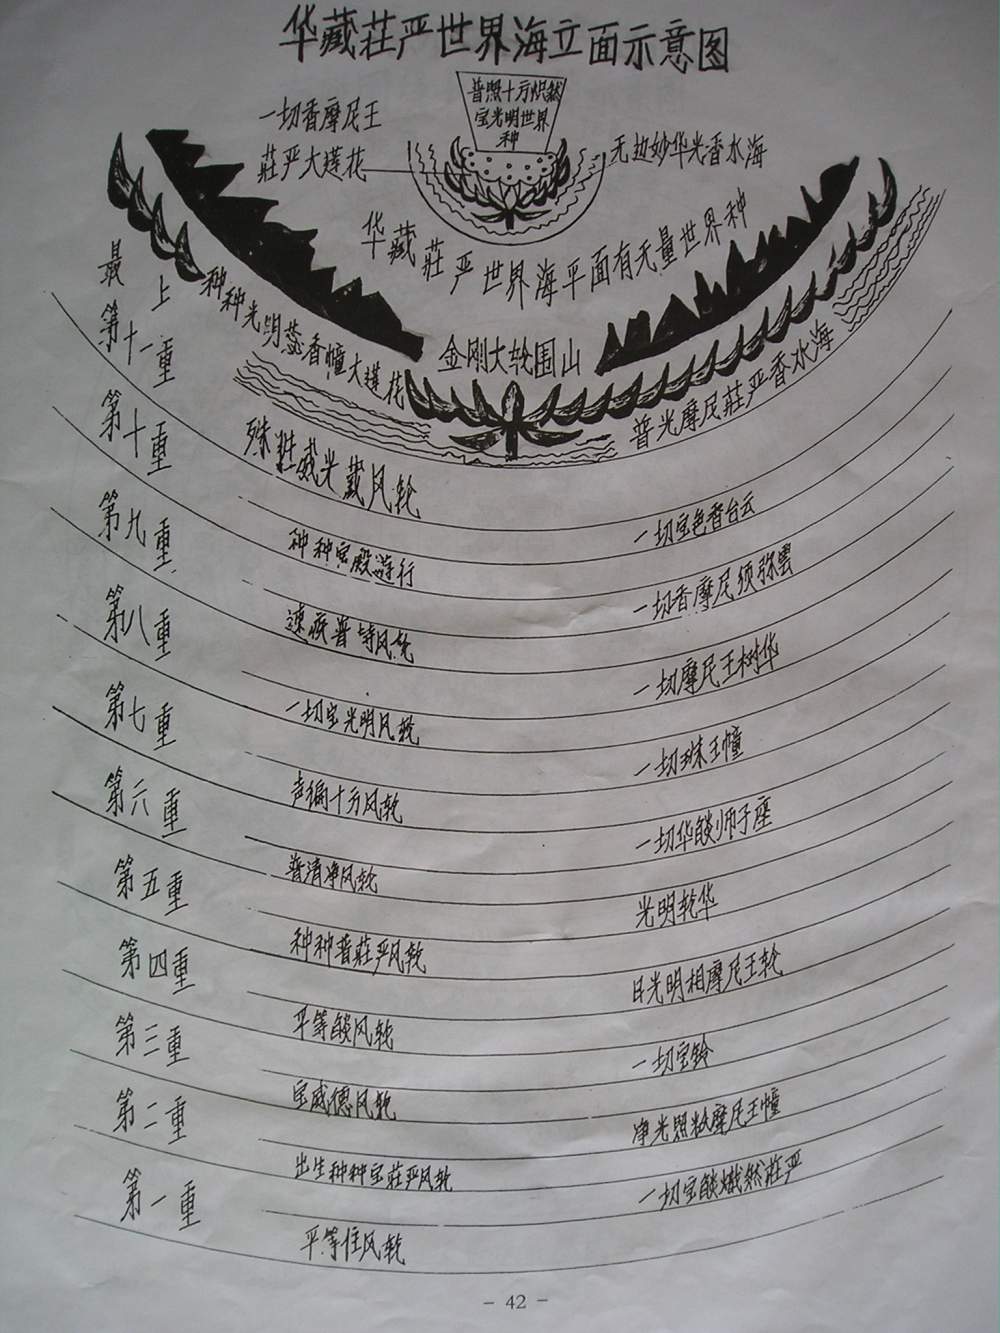 华藏莊严世界海立面示意图
普照十方炽然
宝光明世界
种
一切香摩尼王
莊严大莲花
无边妙华光香水海
华藏莊严世界海平面有无量世界种
最上
种种光明蕊香幢大莲花
金刚大轮围山
普光摩尼莊严香水海
第十一重
殊胜威光藏风轮
一切宝色香台云
第十重
种种宝殿游行
一切香摩尼须弥雲
第九重
速疾普持风轮
一切摩尼王树华
第八重
一切宝光明风轮
一切珠王幢
第七重
声徧十方风轮
一切华燄师子座
第六重
普清净风轮
光明乾华
第五重
种种普莊严风轮
日光明相摩尼王轮
第四重
平等燄风轮
一切宝铃
第三重
宝威德风轮
净光照敉摩尼王幢
第二重
出生种种宝莊严风轮
一切宝燄熾然莊严
第一重
平等住风轮
- 42 -